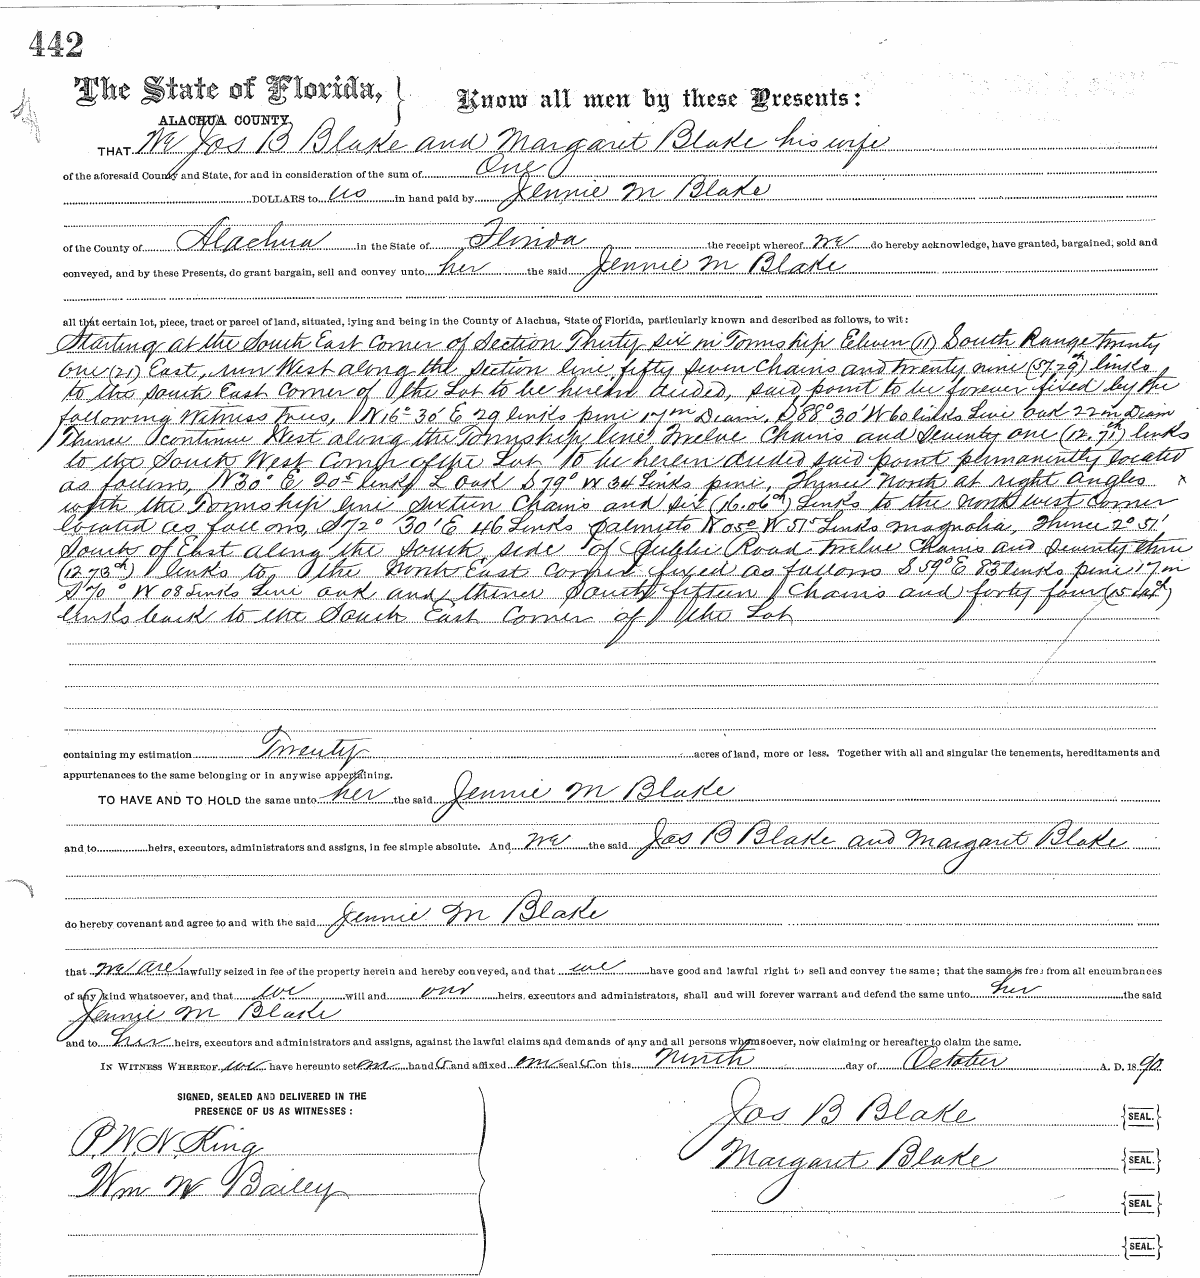 442
The State of Florida, } Know all men by these Presents:
ALACHUA COUNTY.
THAT We Jos B Blake and Margaret Blake his wife
of the aforesaid County and State, for and in consideration of the sum of One
DOLLARS to us in hand paid by Jennie M Blake
of the County of Alachua in the State of Florida the receipt whereof we do hereby acknowledge, have granted, bargained, sold and
conveyed, and by these Presents, do grant bargain, sell and convey unto her the said Jennie M Blake
all that certain lot, piece, tract or parcel of land, situated, lying and being in the County of Alachua, State of Florida, particularly known and described as follows, to wit:
Starting at the South East Corner of Section Thirty six in Township Eleven (11) South Range twenty
one (21) East, run West along the Section line fifty seven Chains and twenty nine (57.29ch) links
to the South East Corner of the Lot to be herein deeded, said point to be forever fixed by the
following Witness trees, N16° 30' E 29 links pine 17in Diam, S88° 30' W 60 links Live oak 22in Diam
Thence continue West along the Township line Twelve Chains and Seventy one (12.71ch) links
to the South West Corner of the Lot to be herein deeded said point permanently located
as follows, N30° E 205 links L oak S79° W 34 links pine, Thence North at right angles
with the Township line Sixteen Chains and six (16.06ch) Links to the North west Corner
located as follows, S72° 30' E 46 Links Palmetto N05° W 515 Links magnolia, Thence 2° 51'
South of East along the South side of Public Road twelve Chains and Seventy three
(12.73ch) links to the North East Corner fixed as follows S59° E 83 links pine 17in
S70° W 08 Links Live oak and thence South fifteen Chains and forty four (15.44ch)
links back to the South East Corner of the Lot
containing my estimation Twenty acres of land, more or less. Together with all and singular the tenements, hereditaments and
appurtenances to the same belonging or in anywise appertaining.
TO HAVE AND TO HOLD the same unto her the said Jennie M Blake
and to heirs, executors, administrators and assigns, in fee simple absolute. And we the said Jos B Blake and Margaret Blake
do hereby covenant and agree to and with the said Jennie M Blake
that we are lawfully seized in fee of the property herein and hereby conveyed, and that we have good and lawful right to sell and convey the same; that the same is free from all encumbrances
of any kind whatsoever, and that we will and our heirs, executors and administrators, shall and will forever warrant and defend the same unto her the said
Jennie M Blake
and to her heirs, executors and administrators and assigns, against the lawful claims and demands of any and all persons whomsoever, now claiming or hereafter to claim the same.
IN WITNESS WHEREOF we have hereunto set our hands and affixed our seals on this Ninth day of October A. D. 1890.
SIGNED, SEALED AND DELIVERED IN THE
PRESENCE OF US AS WITNESSES:
P. W. N. King
Wm W Bailey
Jos B Blake {SEAL.}
Margaret Blake {SEAL.}
{SEAL}
{SEAL.}